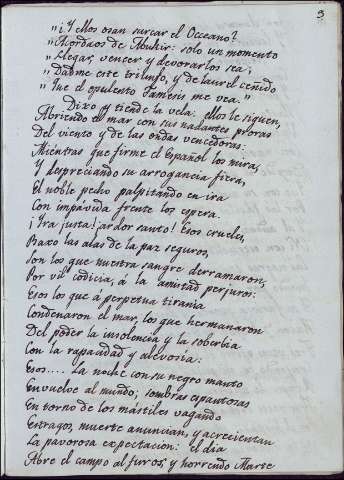 3
"¿Y ellos osan surcar el Occeano?
"Acordaos de Abukir: solo un momento
"Llegar, vencer y devorarlos sea;
"Dadme este triunfo, y de laurel ceñido
"Que el opulento Tamesis me vea."
Dixo y tiende la vela: ellos le siguen,
Abriendo el mar con sus nadantes proras
Del viento y de las ondas vencedoras:
Mientras que firme el Español los mira,
Y despreciando su arrogancia fiera,
El noble pecho palpitando en ira
Con impávida frente los espera.
¡Ira justa! ¡ardor santo! Esos crueles,
Baxo las alas de la paz seguros,
Son los que nuestra sangre derramaron,
Por vil codicia, á la amistad perjuros:
Esos los que á perpetua tirania
Condenaron el mar, los que hermanaron
Del poder la insolencia y la soberbia
Con la rapacidad y alevosía:
Esos.... La noche con su negro manto
Envuelve al mundo; sombras espantosas
En torno de los mástiles vagando
Estragos, muerte anuncian, y acrecientan
La pavorosa expectacion: el dia
Abre el campo al furor, y horrendo Marte